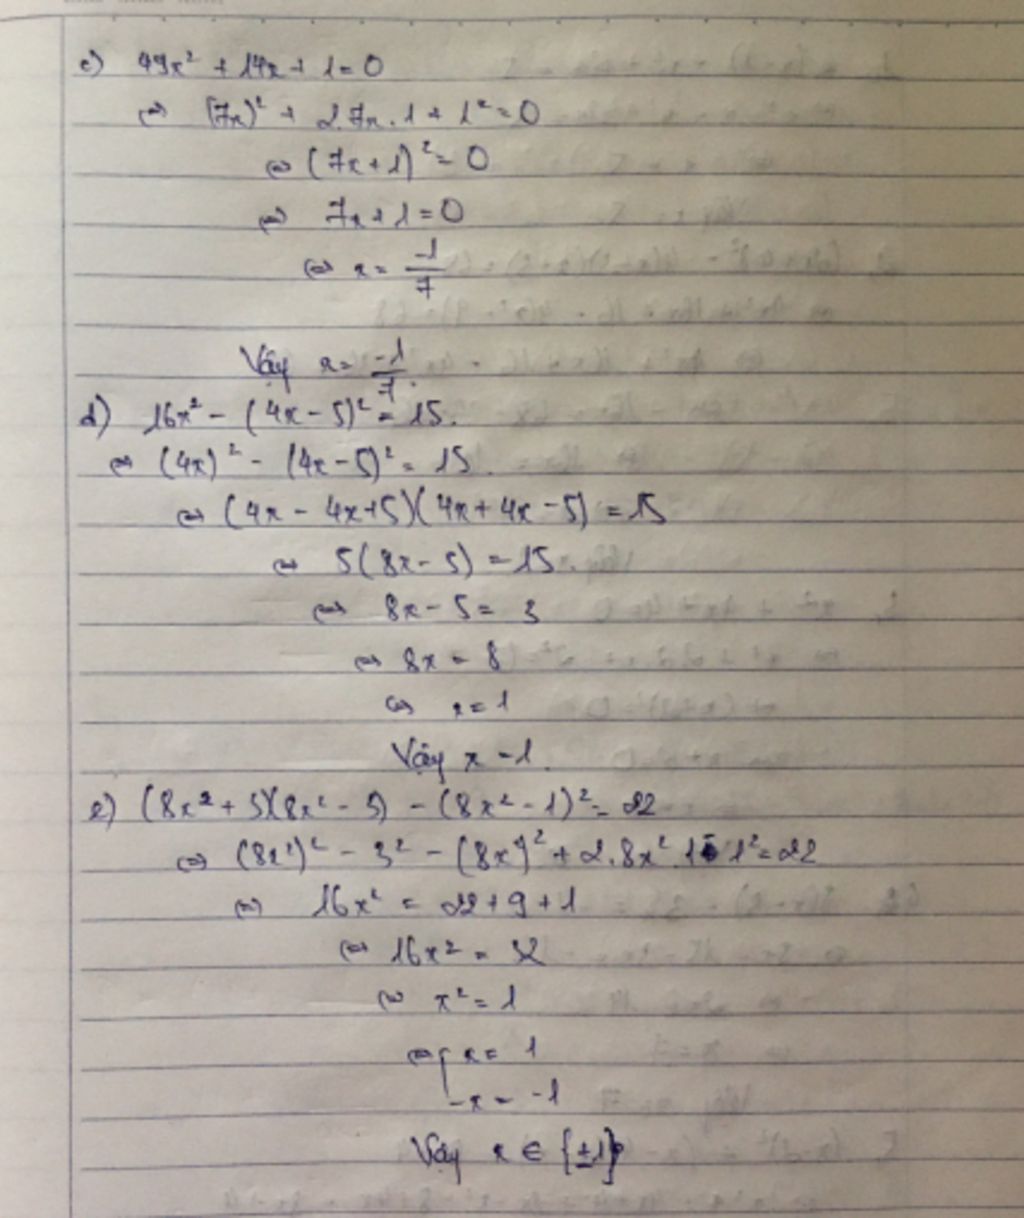 c) 49x² + 14x + 1 = 0
⇔ (7x)² + 2.7x.1 + 1² = 0
⇔ (7x + 1)² = 0
⇔ 7x + 1 = 0
⇔ x = -1/7
Vậy x = -1/7.
d) 16x² - (4x - 5)² = 15.
⇔ (4x)² - (4x - 5)² = 15.
⇔ (4x - 4x + 5)(4x + 4x - 5) = 15
⇔ 5(8x - 5) = 15.
⇔ 8x - 5 = 3
⇔ 8x = 8
⇔ x = 1
Vậy x = 1.
e) (8x² + 3)(8x² - 3) - (8x² - 1)² = 22
⇔ (8x²)² - 3² - (8x²)² + 2.8x².1 - 1² = 22
⇔ 16x² = 22 + 9 + 1
⇔ 16x² = 32
⇔ x² = 1
⇔ [ x = 1
x = -1
Vậy x ∈ {±1}